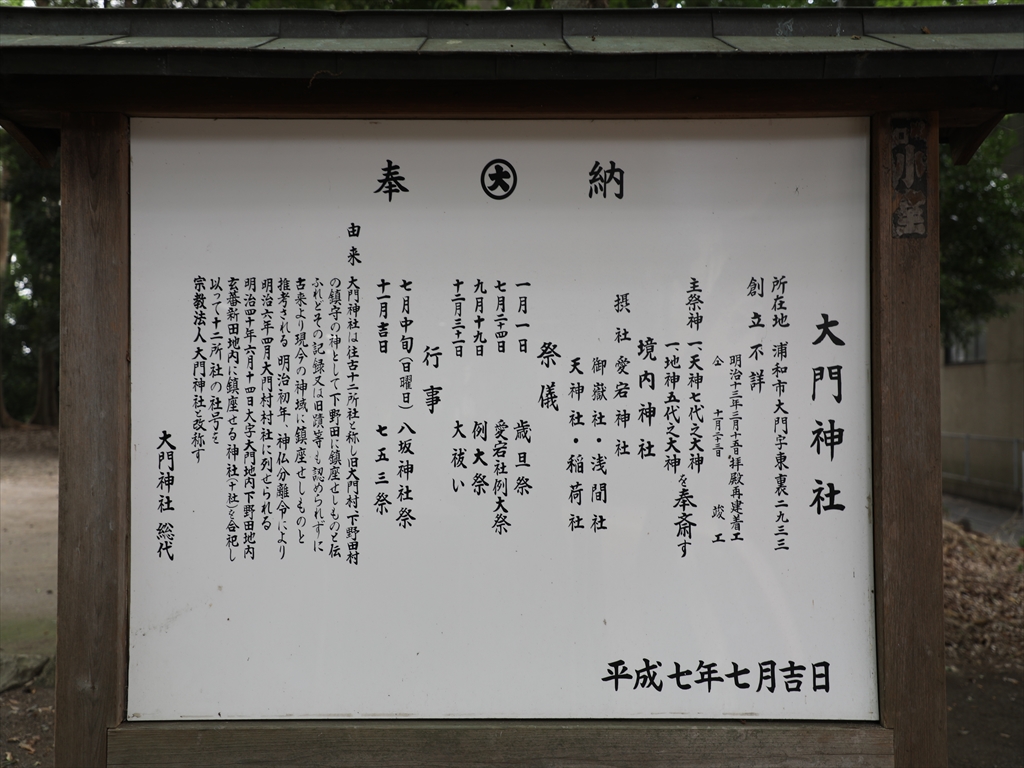 奉 大 納
大門神社
所在地 浦和市大門字東裏二九三三
創立不詳
明治十三年三月十五日拝殿再建着工
仝 十一月二十三日 竣工
主祭神 一、天神七代之大神
一、地神五代之大神を奉斎す
境内神社
摂社 愛宕神社
御嶽社・浅間社
天神社・稲荷社
祭儀
一月一日 歳旦祭
七月二十四日 愛宕社例大祭
九月十九日 例大祭
十二月三十一日 大祓い
行事
七月中旬(日曜日) 八坂神社祭
十一月吉日 七五三祭
由来 大門神社は往古十二所社と称し旧大門村、下野田村
の鎮守の神として下野田に鎮座せしものと伝
ふれどその記録又は旧蹟等も認められずに
古来より現今の神域に鎮座せしものと
推考される 明治初年、神仏分離令により
明治六年四月大門村村社に列せられる
明治四十年六月十四日大字大門地内下野田地内
玄蕃新田地内に鎮座せる神社(十社)を合祀し
以って十二所社の社号を
宗教法人大門神社と改称す
大門神社 総代
平成七年七月吉日